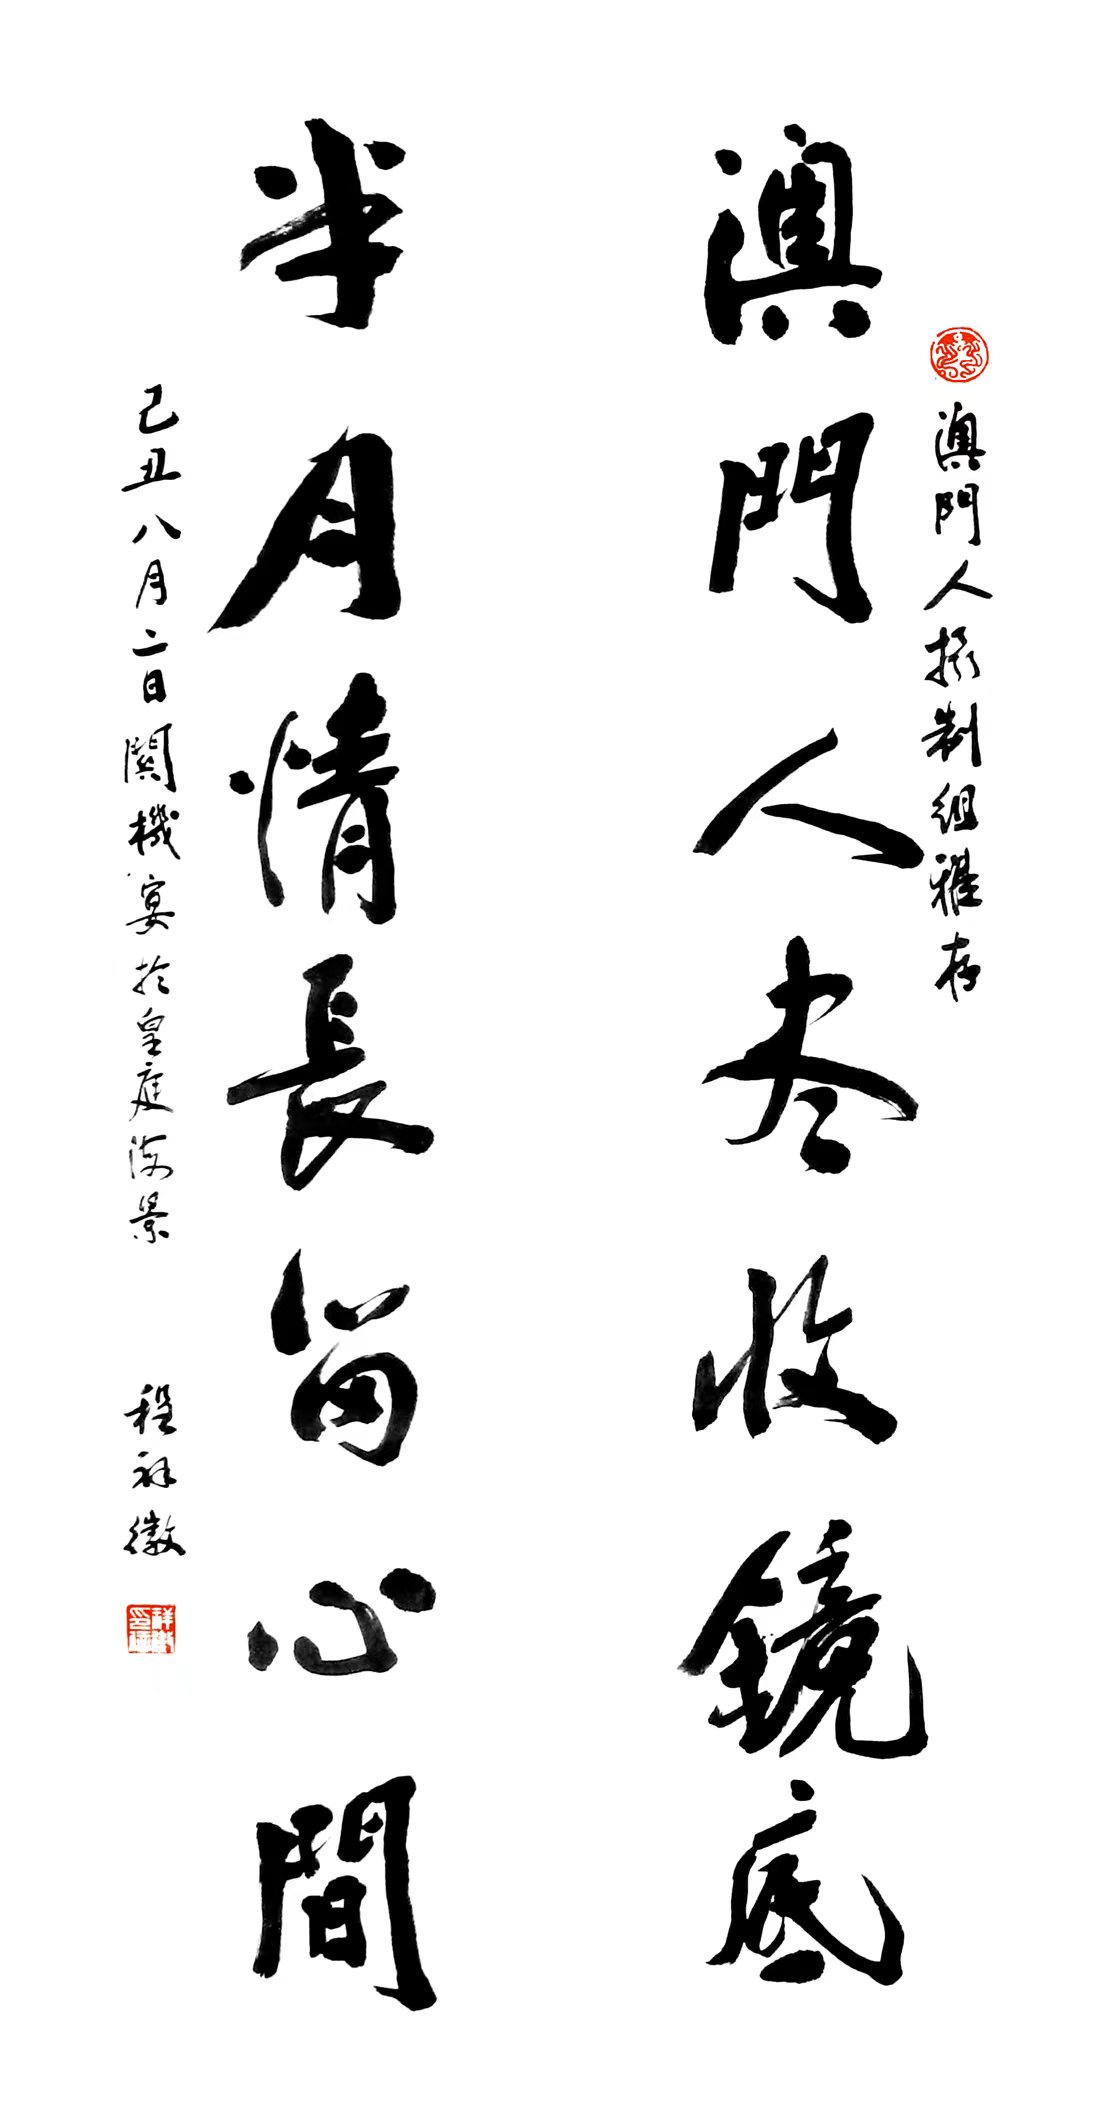 澳門人摄制组雅存
澳門人尽收鏡底
半月情長留心間
己丑八月二日関機宴於皇庭海景
程祥徽